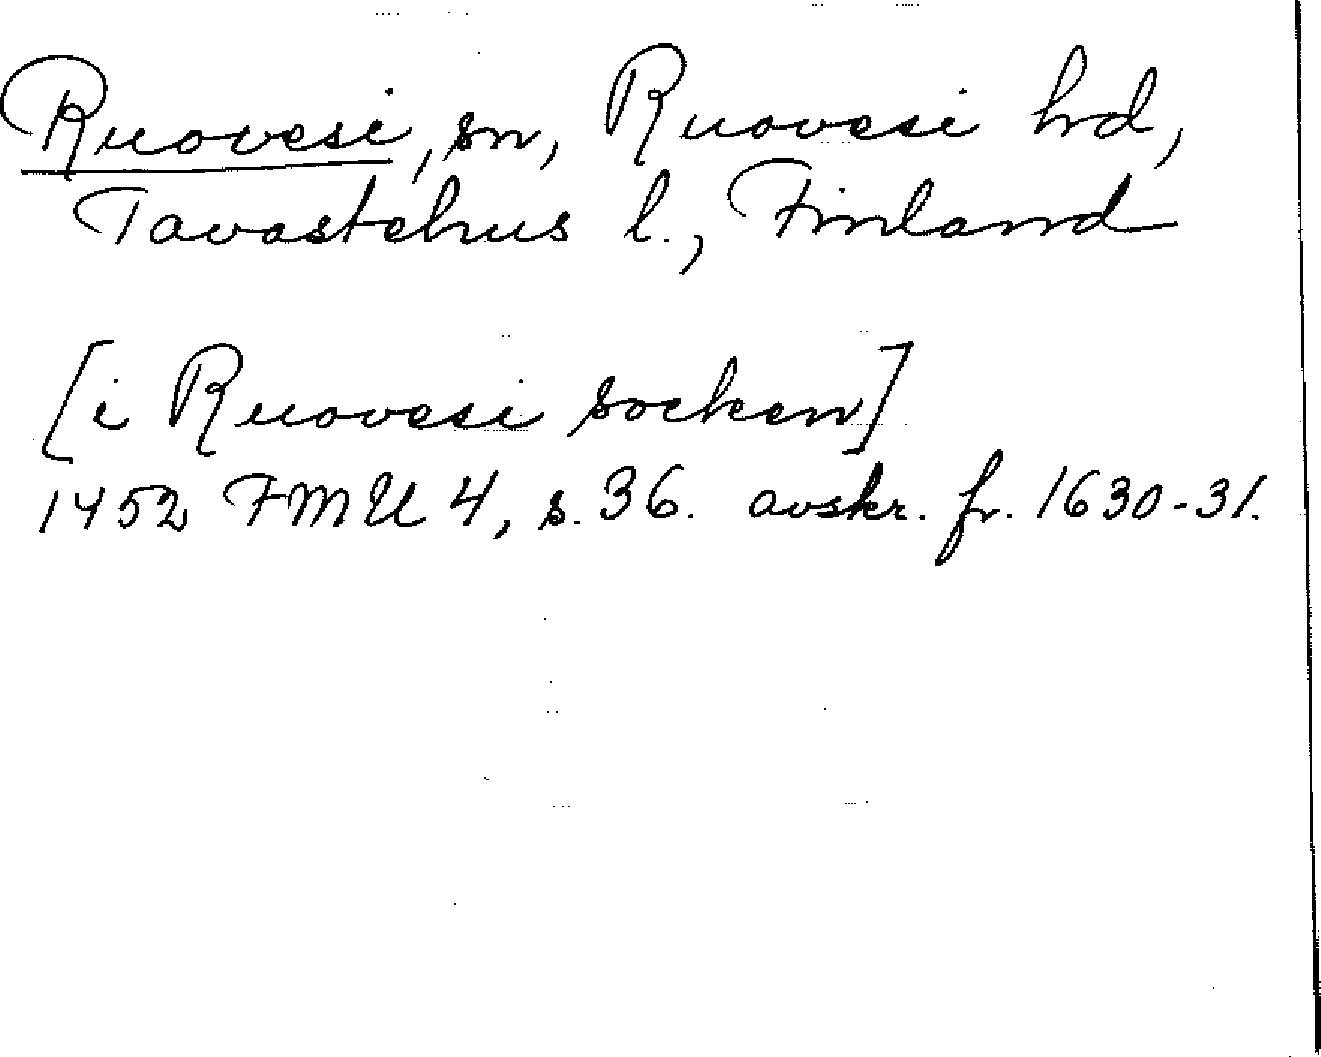 Ruovesi, sn, Ruovesi hd,
Tavastehus l., Finland
[i Ruovesi socken]
1452 FMU 4, s. 36. avskr. fr. 1630-31.